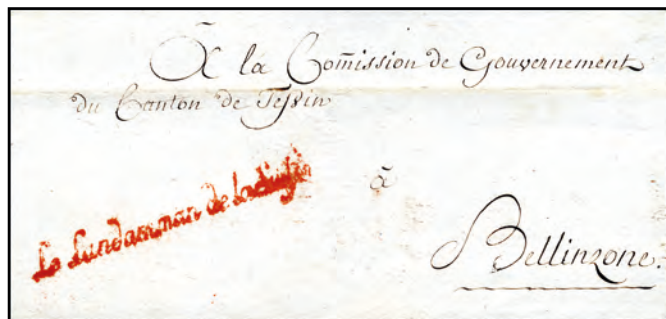 À la Com̄ission de Gouvernement
du Canton de Teſsin
Le Landamman de la Suisse
à
Bellinzone.